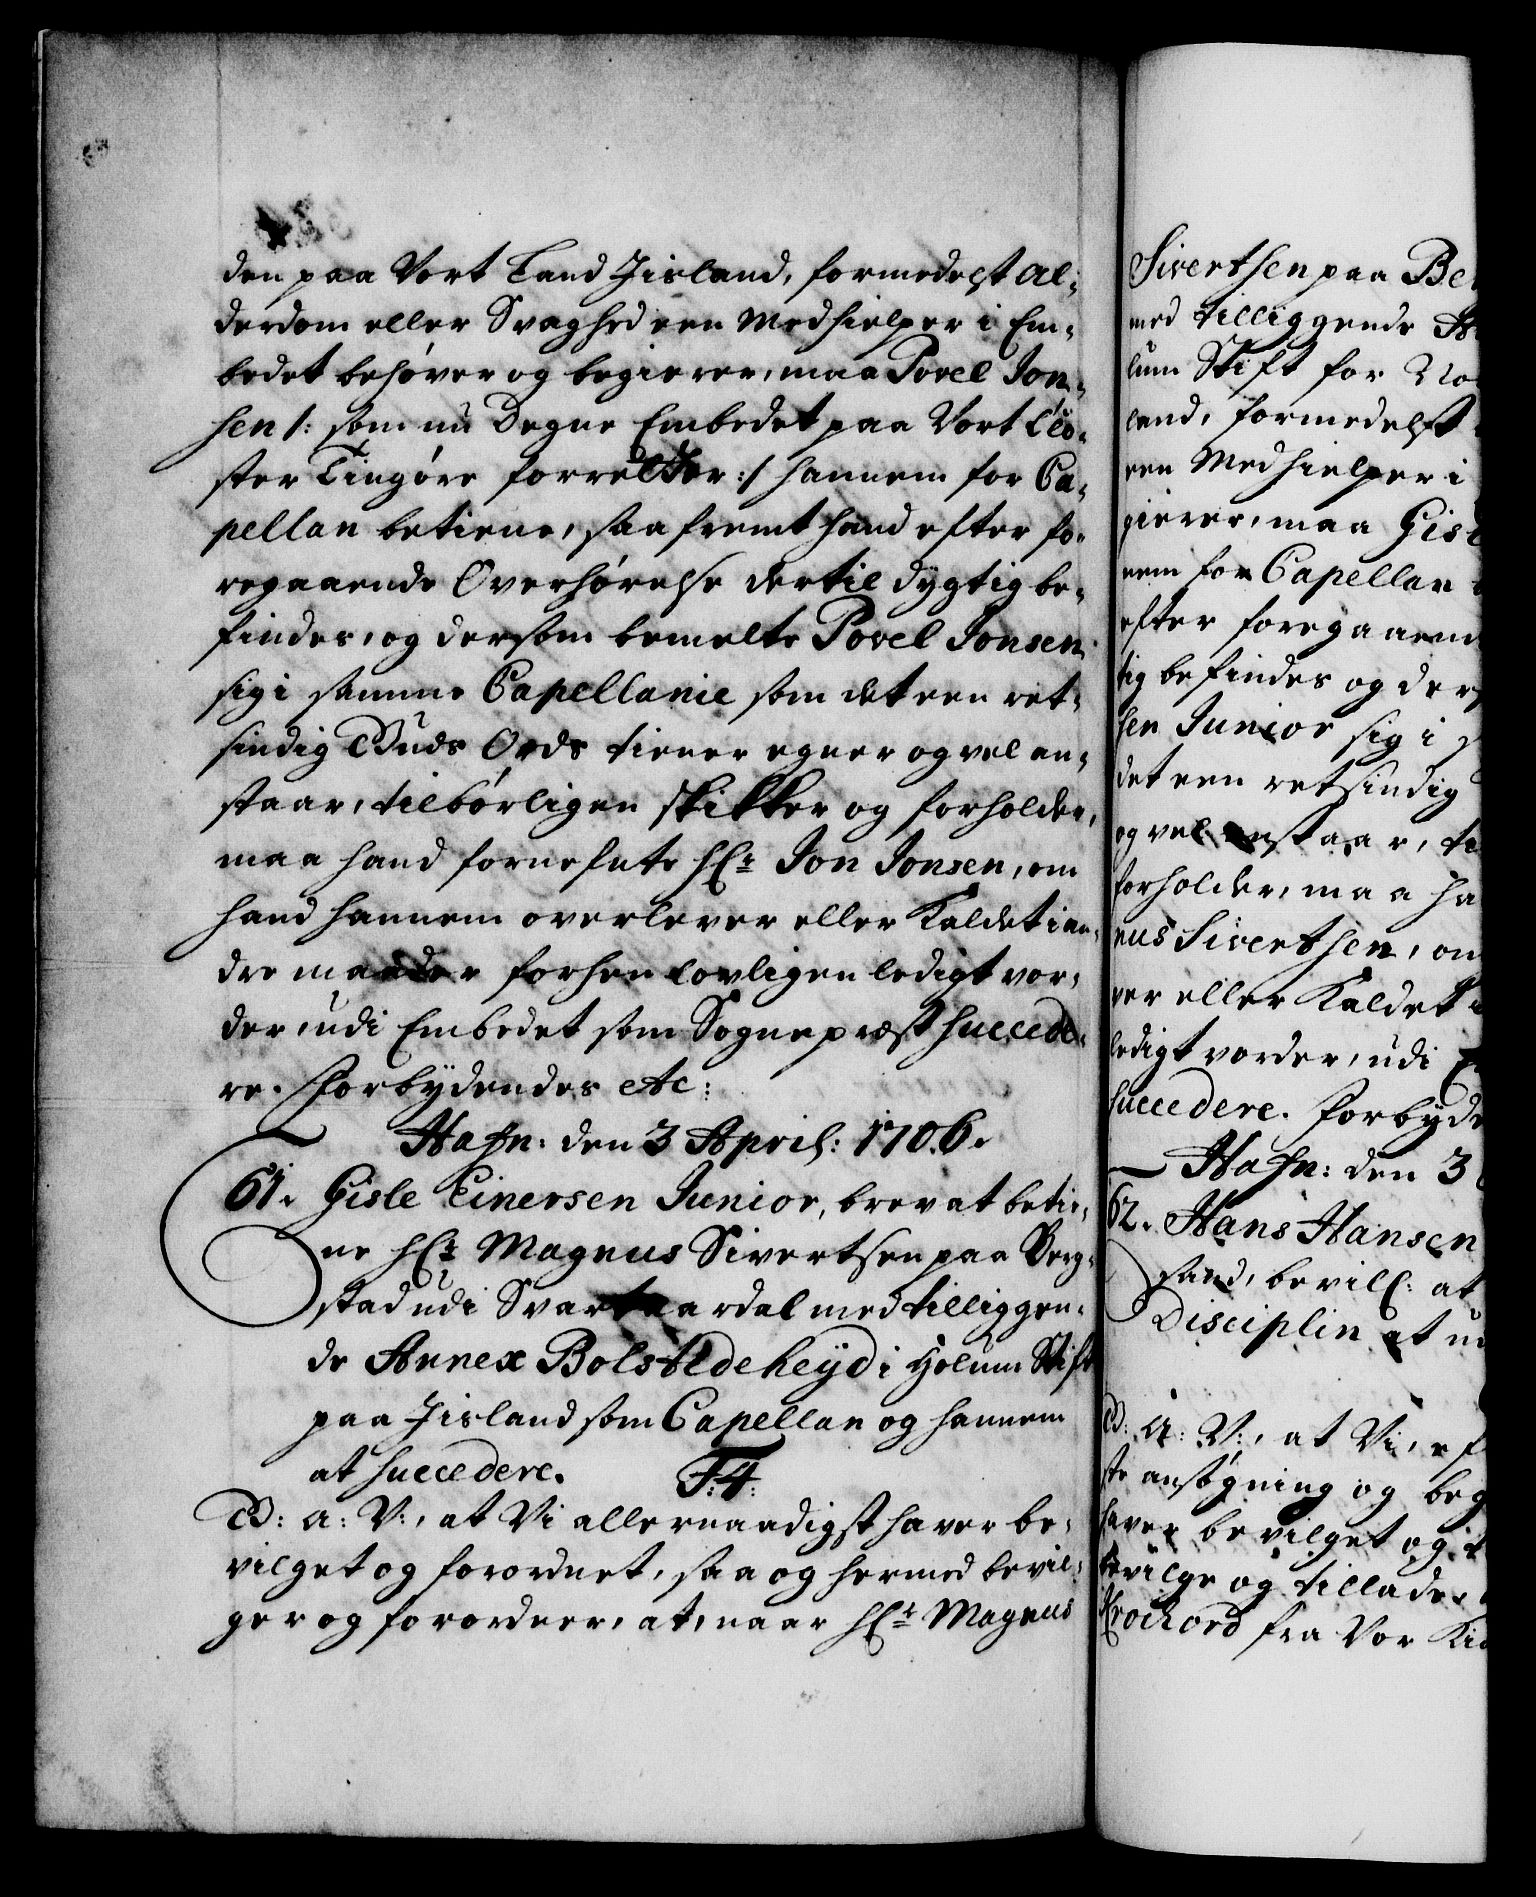 den paa Vort Land Jisland, formedelst Al-
derdom eller Svaghed een Medhielper i Em-
bedet behøver og begierer, maa Povel Jon-
sen /: som nu Degne Embedet paa Vort Clo-
ster Tingøre forretter :/ hannem for Ca-
pellan betiene, saafremt hand efter fo-
regaaende Overhørelse dertil dygtig be-
findes, og dersom bemelte Povel Jonsen
sig i samme Capellanie som det een ret-
sindig Guds Ords tiener egner og vel an-
staar, tilbørligen skikker og forholder,
maa hand fornefnte Hr: Jon Jonsen, om
hand hannem overlever eller Kaldet i an-
dre maader forhen lovligen ledigt vor-
der, udi Embedet som Sognepræst succede-
re. Forbydendes etc:
Hafn: den 3 April: 1706.
61. Gisle Einersen Junior, brev at betie-
ne Hr: Magnus Sivertsen paa Berg-
stad udi Svartaardal med tilliggen-
de Annex Bolstedeheyd i Holum Stift
paa Jisland som Capellan og hannem
at succedere. F:4.
G: A: V:, at Vi allernaadigst haver be-
vilget og forordnet, saa og hermed bevil-
ger og forordner, at, naar Hr: Magnus
Sivertsen paa Be
med tilliggende
lum Stift for No
land, formedelst
een Medhielper i
gierer, maa Gisl
nem for Capellan
efter foregaaend
tig befindes og ders
sen Junior sig i
det een retsindig
og vel anstaar, ti
forholder, maa ha
nus Sivertsen, om
ver eller Kaldet
ledigt vorder, udi
succedere. Forbyde
Hafn: den 3
62. Hans Hansen
sand, bevill: at
Disciplin at u
G: A: V:, at Vi, ef
ste ansøgning og beg
haver bevilget og t
bevilge og tillade,
Krockord fra Vor